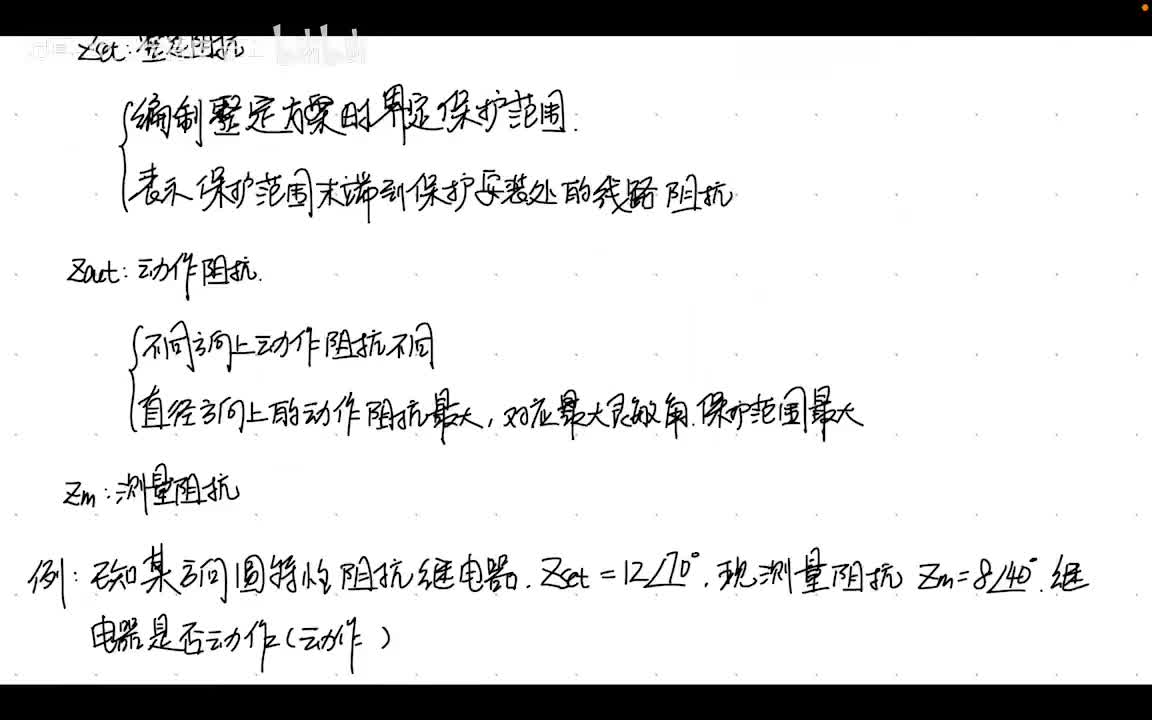 Zset:整定阻抗
编制整定方案时界定保护范围.
表示保护范围末端到保护安装处的线路阻抗
Zact:动作阻抗.
不同方向上动作阻抗不同
直径方向上的动作阻抗最大,对应最大灵敏角.保护范围最大
Zm:测量阻抗
例:已知某方向圆特性阻抗继电器.Zset=12∠70°.现测量阻抗Zm=8∠40°.继
电器是否动作(动作)